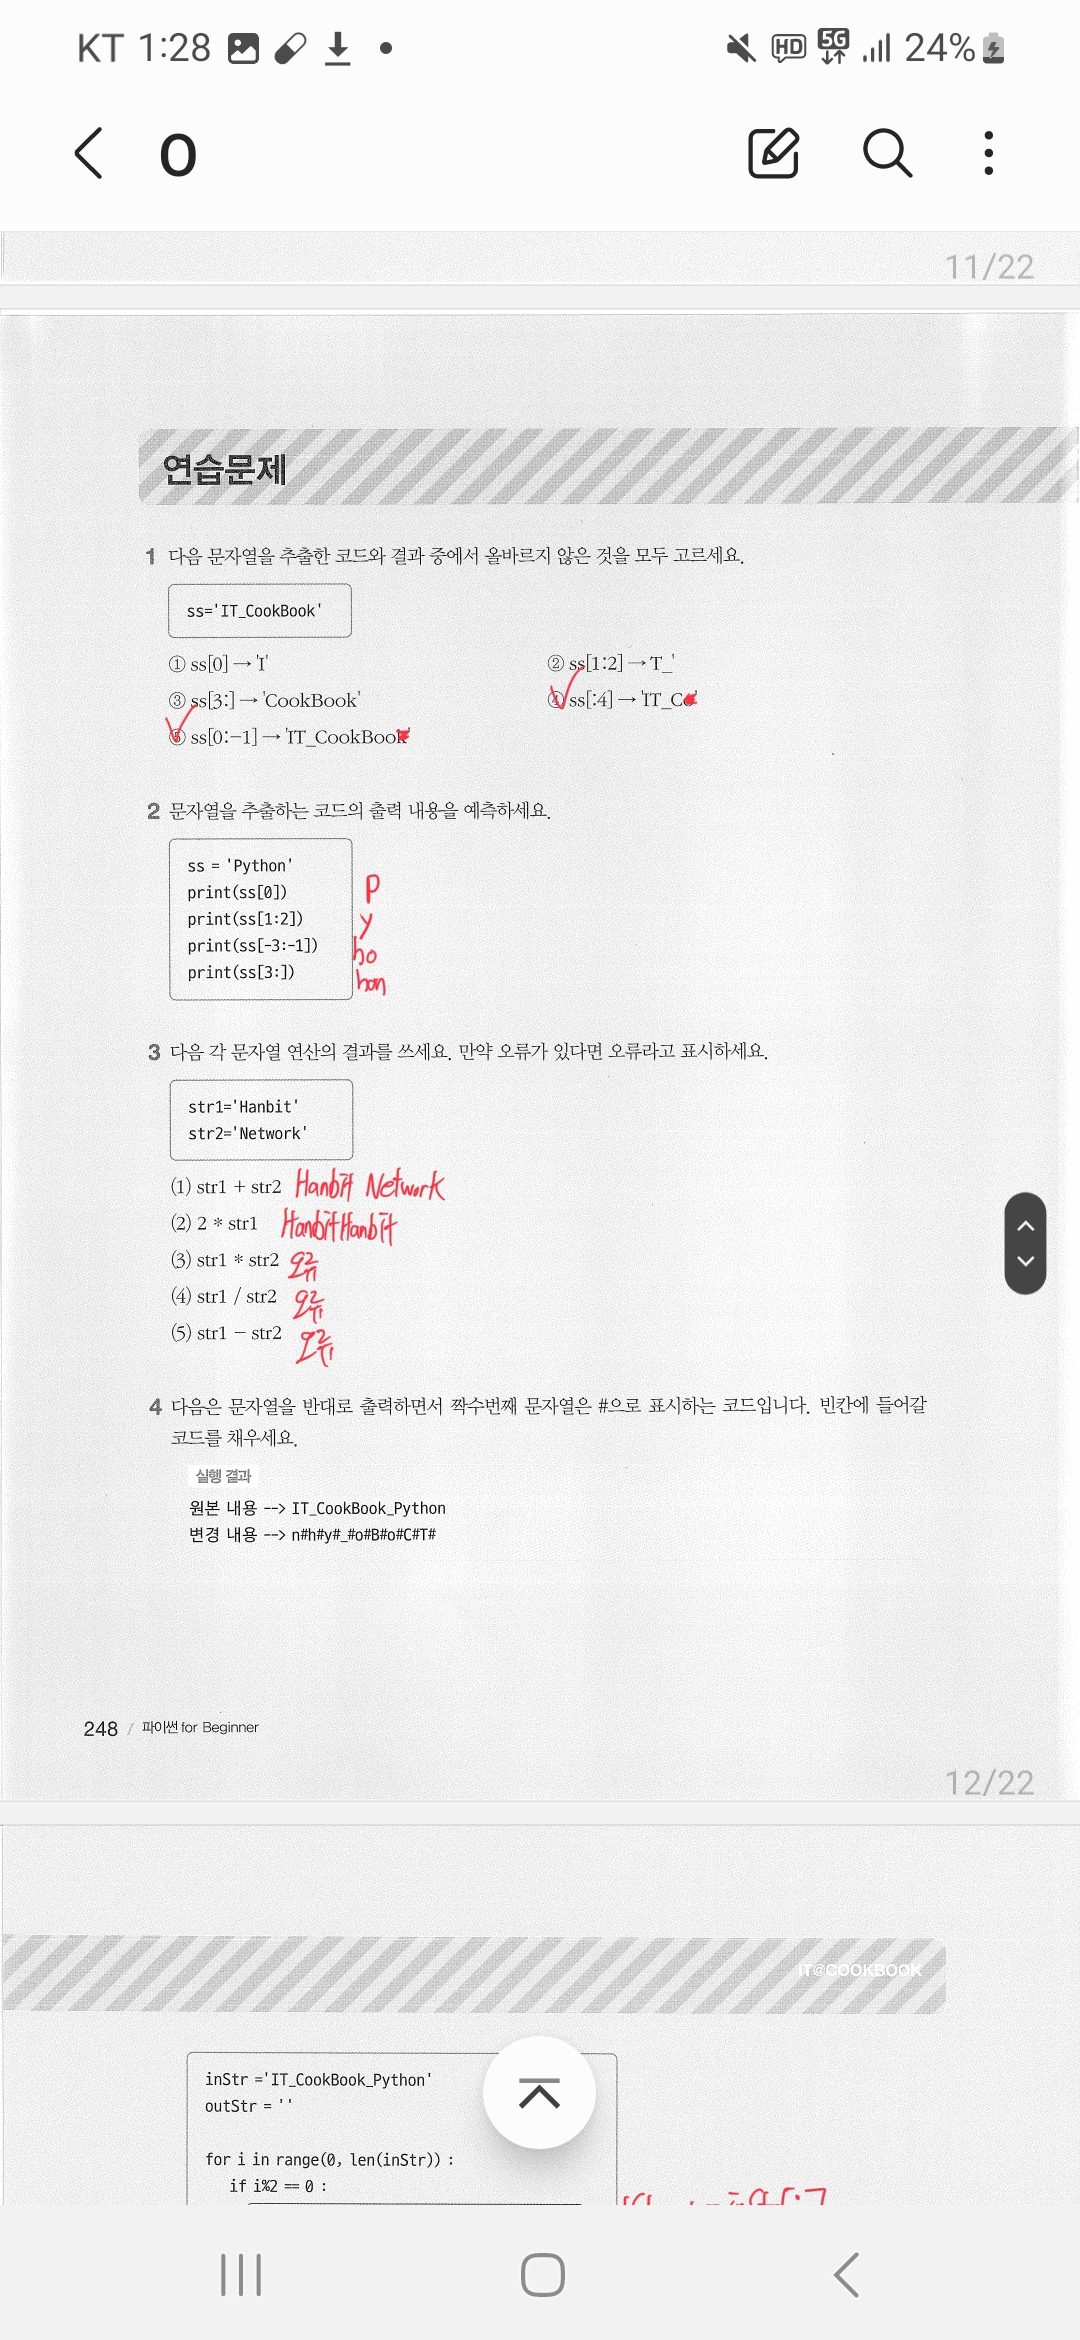 KT 1:28 HD 5G 24%
O
11/22
연습문제
1 다음 문자열을 추출한 코드와 결과 중에서 올바르지 않은 것을 모두 고르세요.
ss='IT_CookBook'
① ss[0] → 'I'
② ss[1:2] → T_'
③ ss[3:] → 'CookBook'
④ ss[:4] → 'IT_Co'
⑤ ss[0:−1] → 'IT_CookBook'
2 문자열을 추출하는 코드의 출력 내용을 예측하세요.
ss = 'Python'
print(ss[0]) p
print(ss[1:2]) y
print(ss[-3:-1]) ho
print(ss[3:]) hon
3 다음 각 문자열 연산의 결과를 쓰세요. 만약 오류가 있다면 오류라고 표시하세요.
str1='Hanbit'
str2='Network'
(1) str1 + str2 Hanbit Network
(2) 2 * str1 HanbitHanbit
(3) str1 * str2 오류
(4) str1 / str2 오류
(5) str1 − str2 오류
4 다음은 문자열을 반대로 출력하면서 짝수번째 문자열은 #으로 표시하는 코드입니다. 빈칸에 들어갈
코드를 채우세요.
실행 결과
원본 내용 --> IT_CookBook_Python
변경 내용 --> n#h#y#_#o#B#o#C#T#
248 / 파이썬 for Beginner
12/22
IT@COOKBOOK
inStr ='IT_CookBook_Python'
outStr = ''
for i in range(0, len(inStr)) :
if i%2 == 0 :